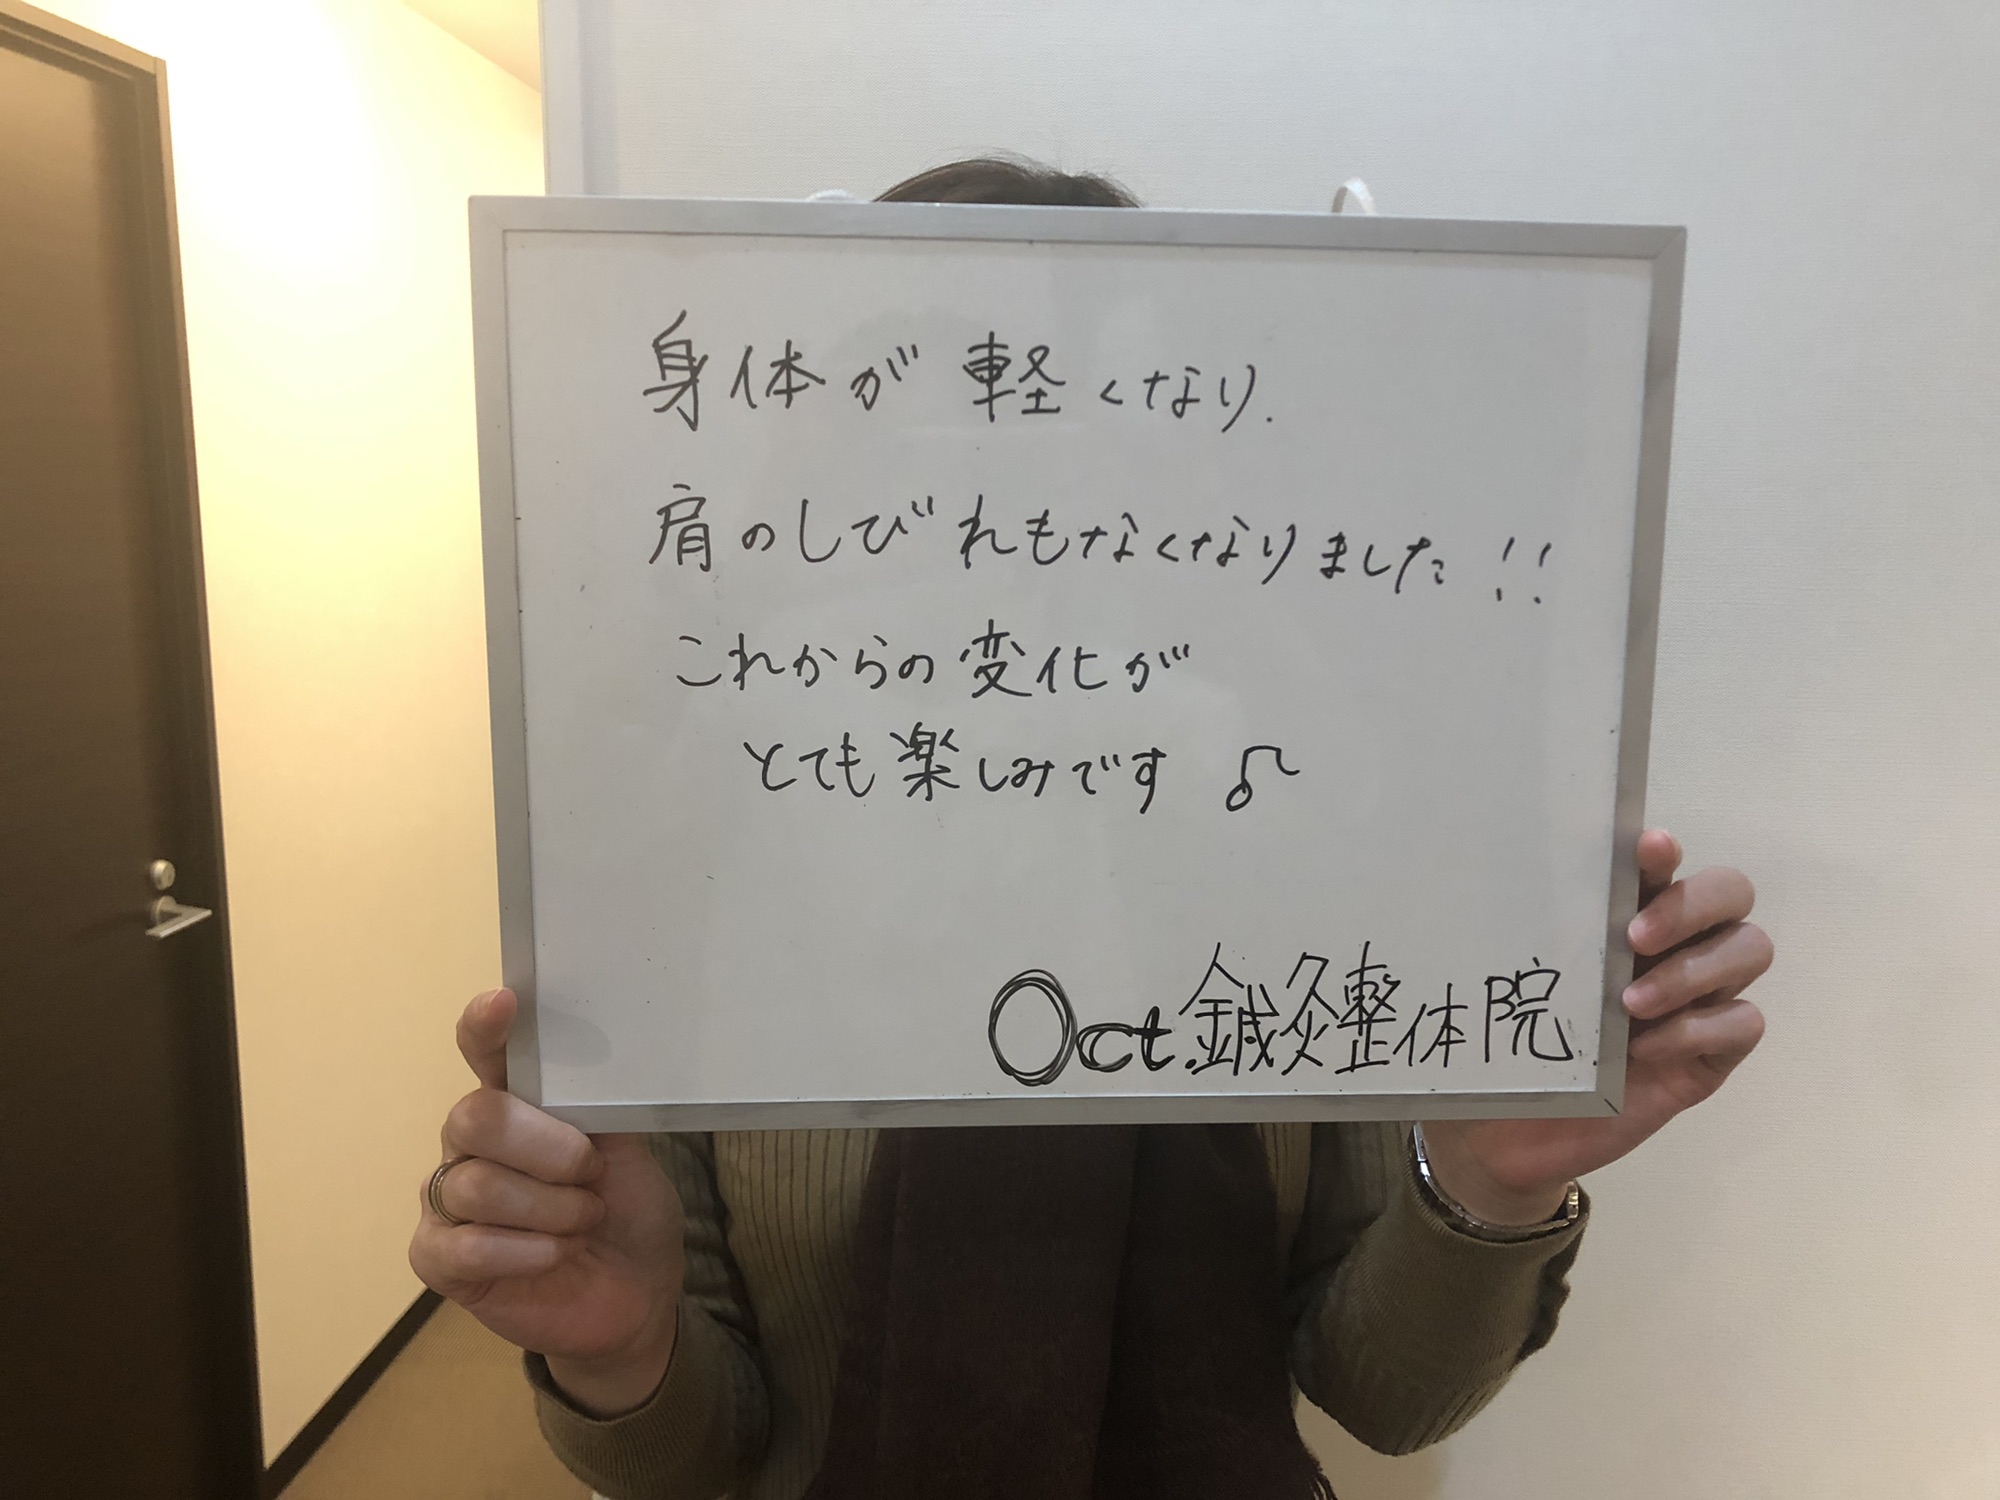 身体が軽くなり.
肩のしびれもなくなりました!!
これからの変化が
とても楽しみです♪
Oct.鍼灸整体院